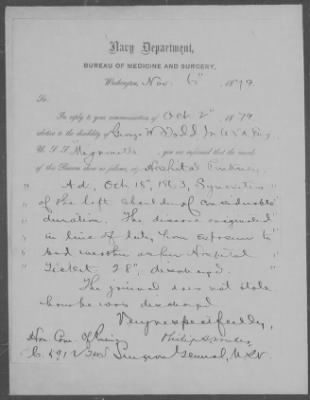 Navy Department,
BUREAU OF MEDICINE AND SURGERY,
Washington, Nov. 6" 1879
To
In reply to your communication of Oct 2" 1879
relative to the disability of George W. Dodd
U.S.S. "Magnolia" you are informed that the records
of this Bureau show as follows, viz: Hospital Pinkney
" Ad. Oct 18", 1863, Synovitis "
" of the left of considerable "
" duration. The disease originated "
" in line of duty from exposure to "
" bad weather as per Hospital "
" Ticket. 28", discharged. "
The journal does not state
how he was discharged
Very respectfully,
Hon. Com. of Pensions
Surgeon General, U.S.N.